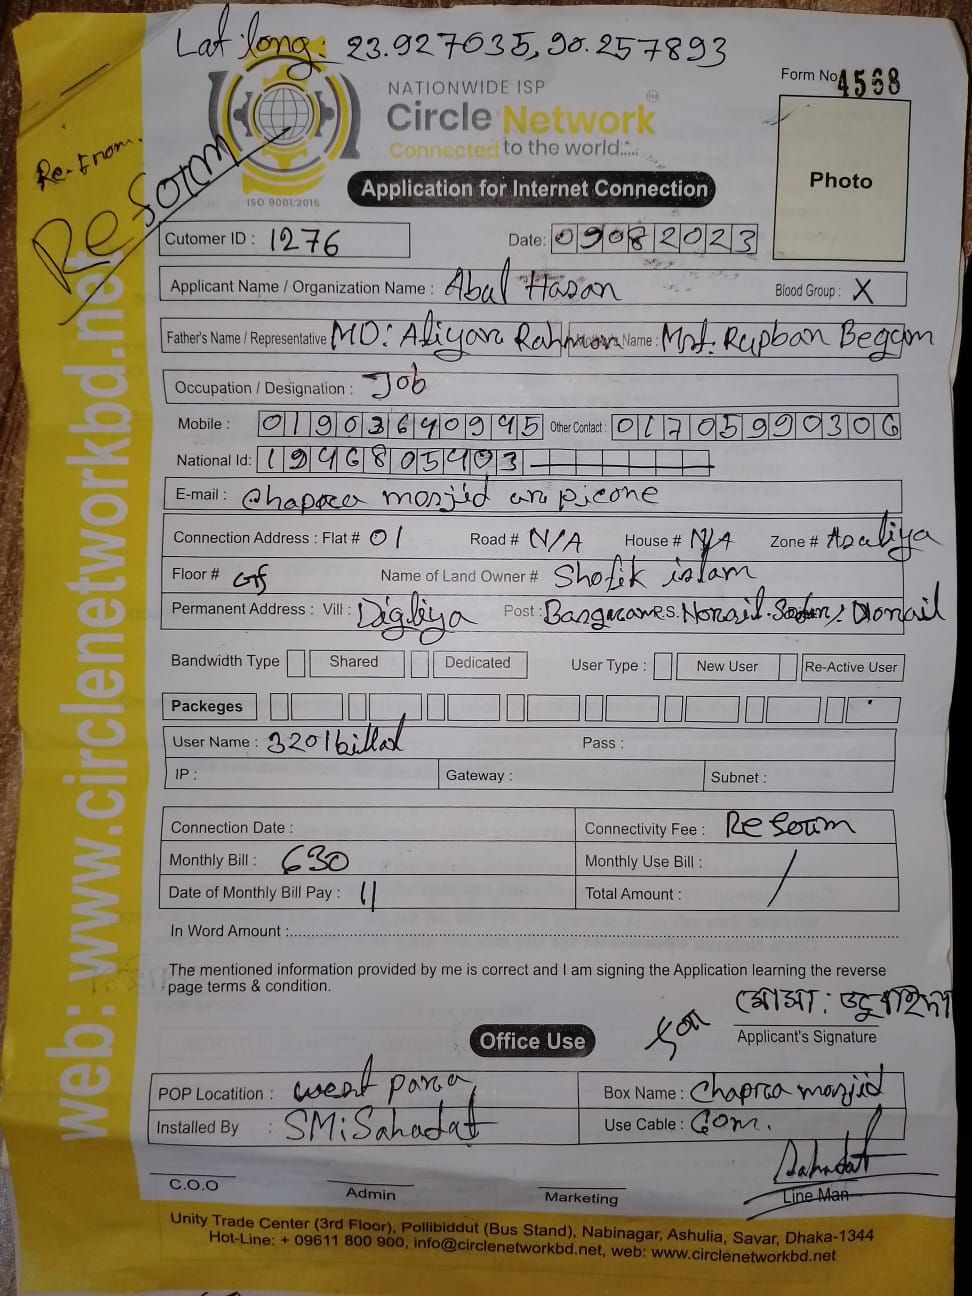 Lat long: 23.927035, 90.257893
Form No 4568
NATIONWIDE ISP
Circle Network TM
Connected to the world.....
ISO 9001:2015
Re-From.
ReSorm
Application for Internet Connection
Photo
Cutomer ID : 1276 Date: 09082023
Applicant Name / Organization Name : Abul Hasan Blood Group : X
Father's Name / Representative MD: Aliyara Rahman Name : Mst. Rupban Begam
Occupation / Designation : Job
Mobile : 01903640945 Other Contact : 01705990306
National Id: 1946805403
E-mail : Chapra mosjid
Connection Address : Flat # 01 Road # N/A House # N/A Zone # Asuliya
Floor # Gf Name of Land Owner # Shofik islam
Permanent Address : Vill : Digliya Post :
Bandwidth Type Shared Dedicated User Type : New User Re-Active User
Packeges
User Name : 3201billal Pass :
IP : Gateway : Subnet :
Connection Date : Connectivity Fee : ReSorm
Monthly Bill : 630 Monthly Use Bill : /
Date of Monthly Bill Pay : 11 Total Amount :
In Word Amount :
The mentioned information provided by me is correct and I am signing the Application learning the reverse
page terms & condition.
মোসা:
Applicant's Signature
Office Use
POP Locatition : west para Box Name : Chapra mosjid
Installed By : SM:Sahadat Use Cable : Com.
Sahadat
C.O.O Admin Marketing Line Man
Unity Trade Center (3rd Floor), Pollibiddut (Bus Stand), Nabinagar, Ashulia, Savar, Dhaka-1344
Hot-Line: + 09611 800 900, info@circlenetworkbd.net, web: www.circlenetworkbd.net
web: www.circlenetworkbd.net